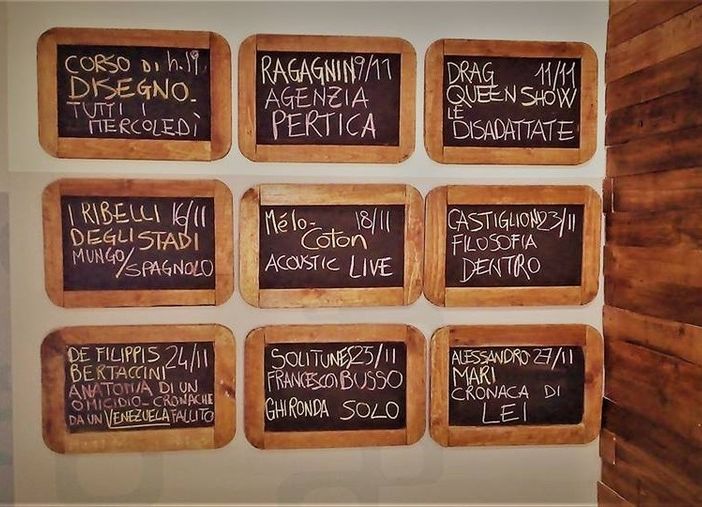 CORSO DI h.19
DISEGNO-
TUTTI I
MERCOLEDÌ
RAGAGNIN 9/11
AGENZIA
PERTICA
DRAG 11/11
QUEEN SHOW
LE
DISADATTATE
I RIBELLI 16/11
DEGLI STADI
MUNGO/SPAGNOLO
Mélo- 18/11
Coton
ACOUSTIC LIVE
CASTIGLIONI 23/11
FILOSOFIA
DENTRO
DE FILIPPIS 24/11
BERTACCINI
ANATOMIA DI UN
OMICIDIO-CRONACHE
DA UN VENEZUELA FALLITO
SOLITUNES 25/11
FRANCESCO BUSSO
GHIRONDA SOLO
ALESSANDRO 27/11
MARI
CRONACA DI
LEI